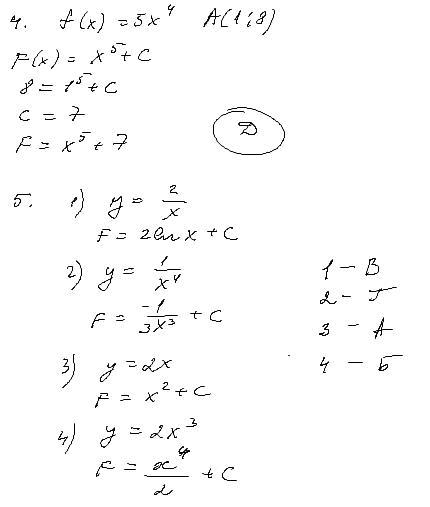 4. f(x) = 5x⁴ A(1;8)
F(x) = x⁵ + C
8 = 1⁵ + C
C = 7
F = x⁵ + 7
Д
5. 1) y = 2/x
F = 2ln x + C
2) y = 1/x⁴
F = -1/3x³ + C
3) y = 2x
F = x² + C
4) y = 2x³
F = x⁴/2 + C
1 – В
2 – Г
3 – А
4 – Б